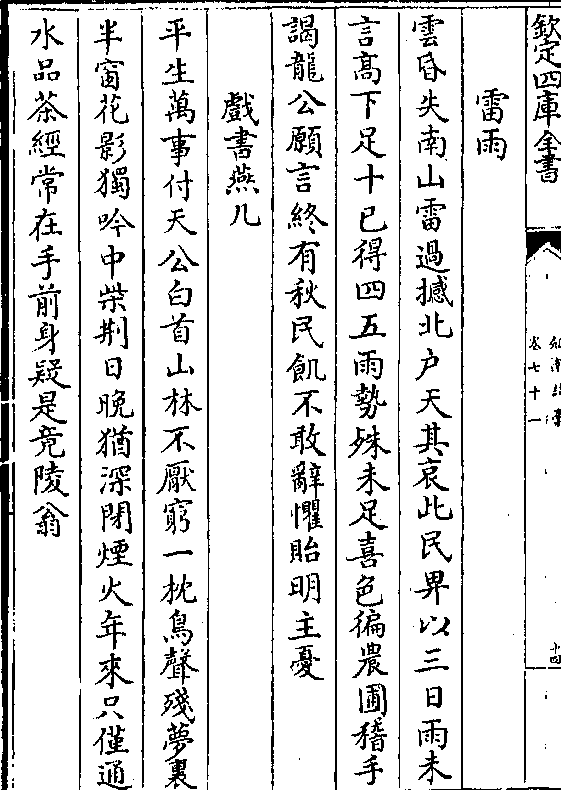 欽定四庫全書
卷七十一
十四
雷雨
雲昏失南山雷過撼北户天其哀此民畀以三日雨未
言高下足十已得四五雨勢殊未足喜色徧農圃稽手
謁龍公願言終有秋民飢不敢辭懼貽明主憂
戲書燕几
平生萬事付天公白首山林不厭窮一枕鳥聲殘夢裏
半窗花影獨吟中柴荆日晚猶深閉煙火年來只僅通
水品茶經常在手前身疑是竟陵翁